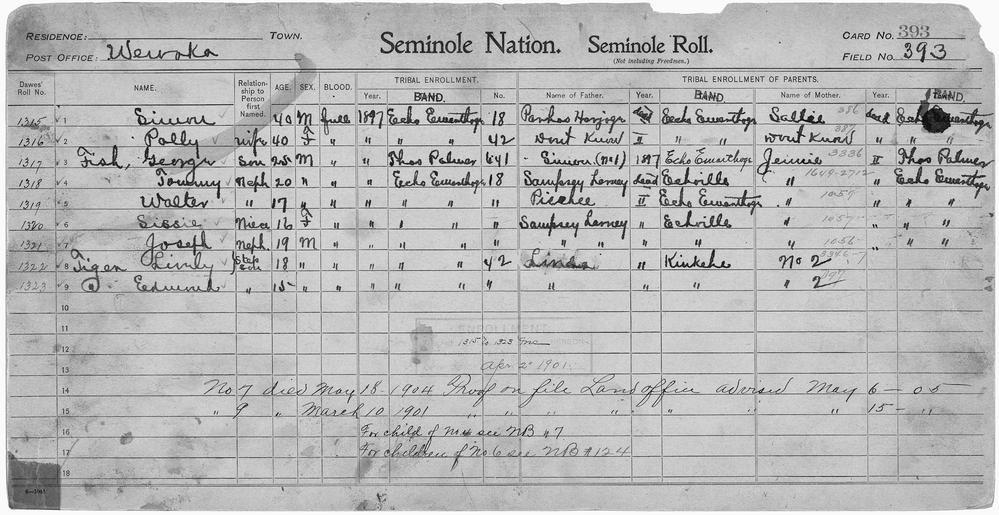 RESIDENCE: TOWN. Seminole Nation. Seminole Roll. CARD NO. 393
POST OFFICE: Wewoka (Not including Freedmen.) FIELD NO. 393
Dawes' Roll No. NAME. Relationship to Person first Named. AGE. SEX. BLOOD. TRIBAL ENROLLMENT. TRIBAL ENROLLMENT OF PARENTS.
Year. BAND. No. Name of Father. Year. BAND. Name of Mother. Year. BAND.
1315 1 Simon 40 M full 1897 Echo Emarthoge 18 Parhos Harjoge dead Echo Emarthoge Sallie 386 dead Echo Emarthoge
1316 2 Polly wife 40 F " " " " 42 Dont Know " Dont Know 387 " "
1317 3 Fish, George Son 25 M " " Thos Palmer 641 Simon (No 1) 1897 Echo Emarthoge Jennie 3336 " Thos Palmer
1318 4 Tommy Neph 20 " " " Echo Emarthoge 18 Sampsey Larney dead Echville " 1649-2712 " Echo Emarthoge
1319 5 Walter " 17 " " " " " " " Echo Emarthoge " 1057 " " "
1320 6 Sissie Niece 16 F " " " " " Sampsey Larney " Echville " 1057 " " "
1321 7 Joseph Neph. 19 M " " " " " " " " " " 1056 " " "
1322 8 Tiger Lively Step Son 18 " " " " " 42 Linda " Kinkehe No 2
1323 9 " Edmund " 15 " " " " " " " " " " 2
10
11
12 1315 to 1323 Inc
13 Apr 2 1901
14 No 7 died May 18 - 1904 Proof on file Land office advised May 6 - 05
15 " 9 " March 10 1901 " " " " " " " 15 - "
16 For child of No 4 see NB #7
17 For children of No 6 see NB #124
18